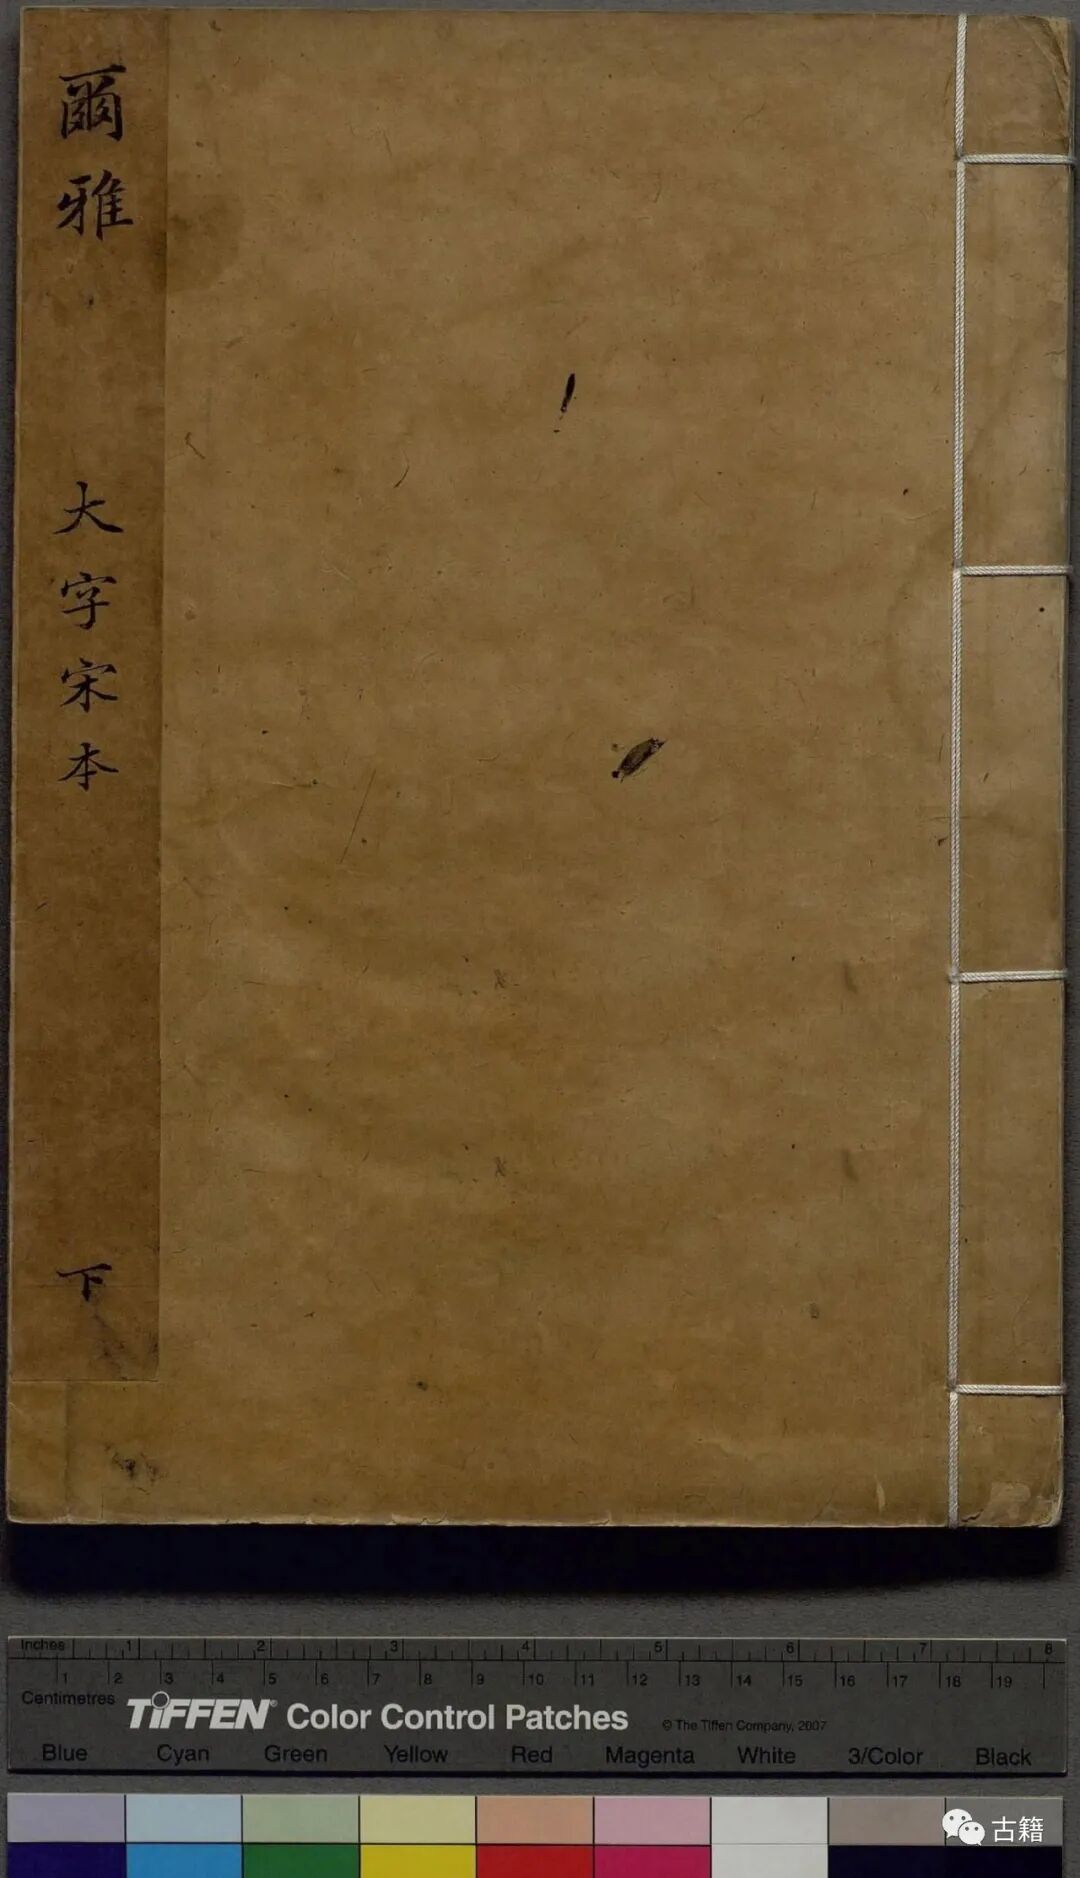 爾雅
大字宋本
下
Inches 1 2 3 4 5 6 7 8
1 2 3 4 5 6 7 8 9 10 11 12 13 14 15 16 17 18 19
Centimetres
TIFFEN® Color Control Patches © The Tiffen Company, 2007
Blue Cyan Green Yellow Red Magenta White 3/Color Black
古籍